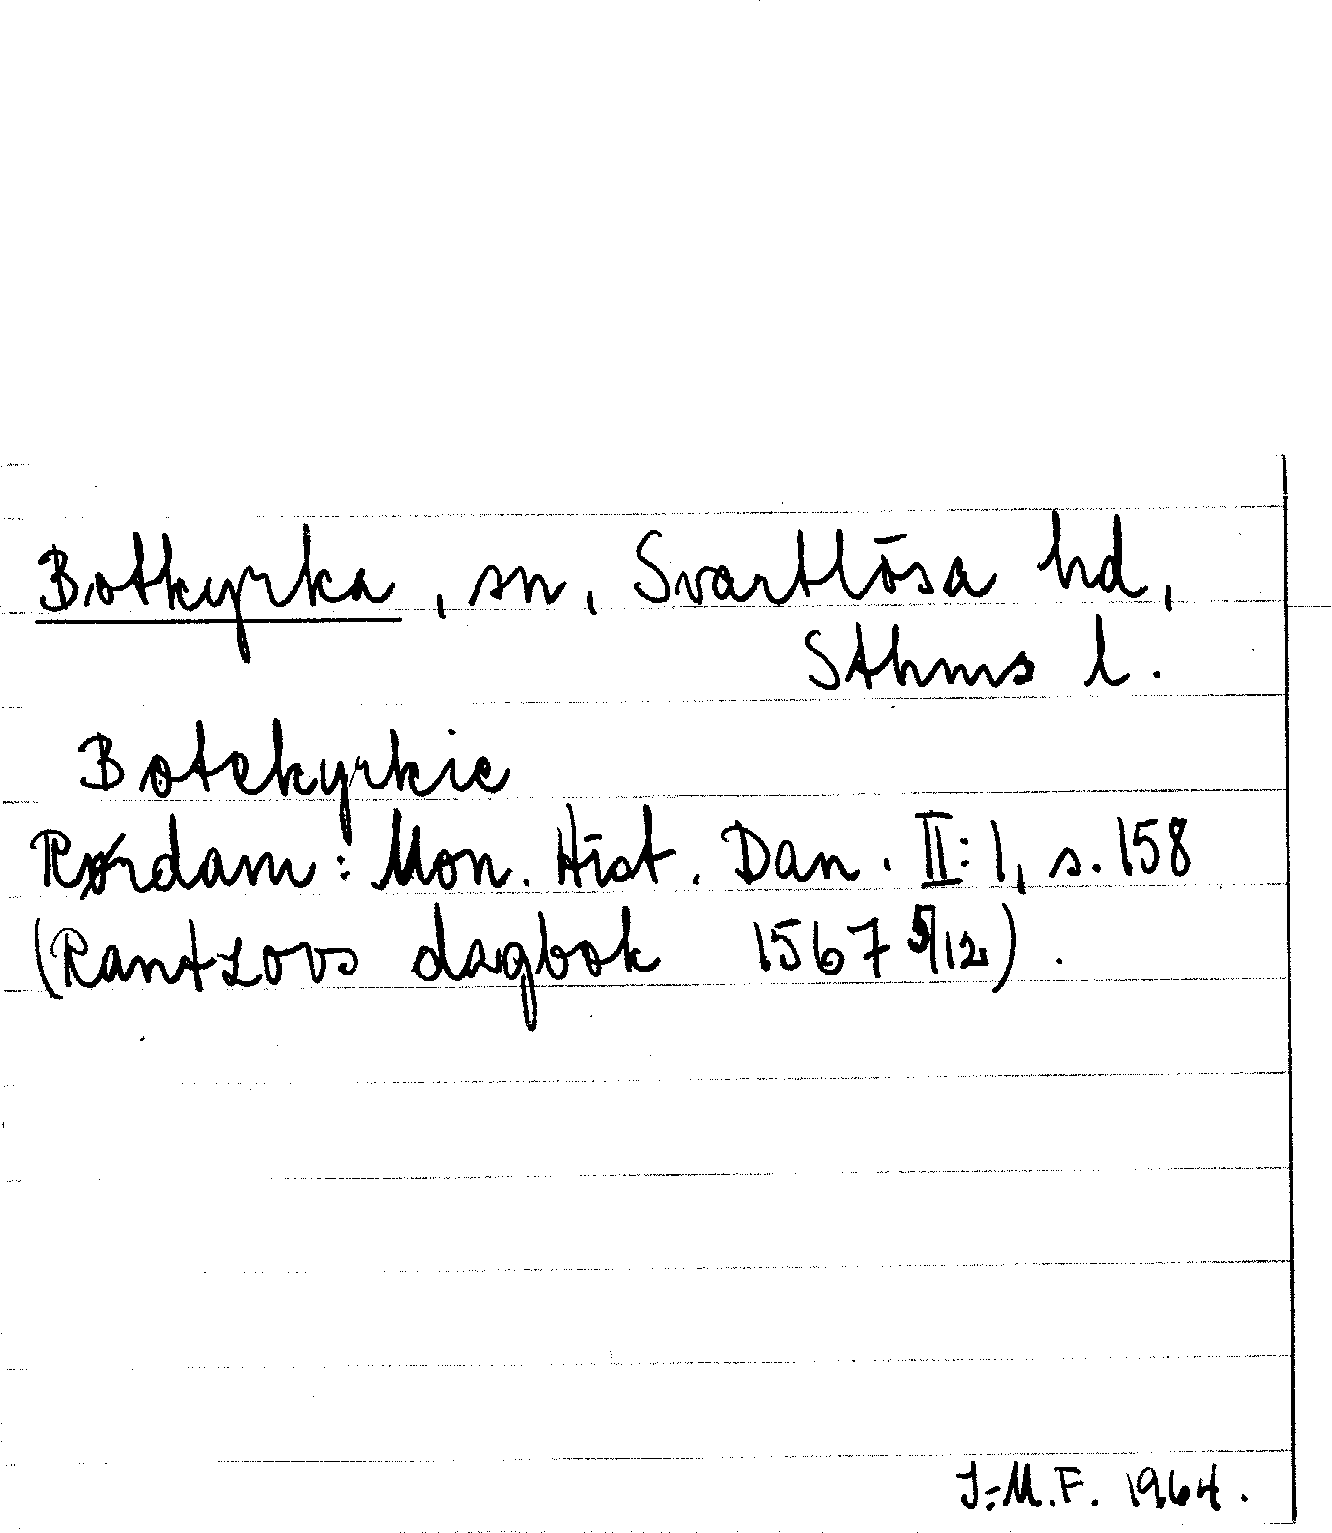 Botkyrka, sn, Svartlösa hd,
Sthms l.
Botekyrkie
Rørdam: Mon. Hist. Dan. II:1, s. 158
(Rantzovs dagbok 1567 5/12).
J-M.F. 1964.